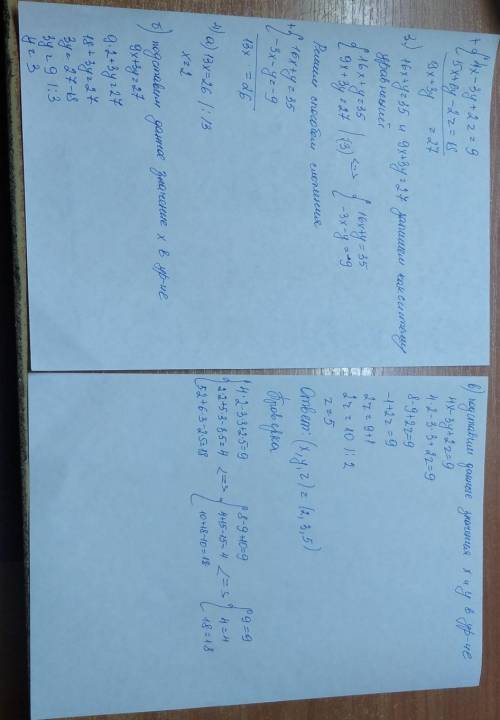 + { 4x-3y+2z=9
5x+6y-2z=18
9x+3y =27
3) 16x+y=35 и 9x+3y=27 запишем как систему
уравнений
{ 16x+y=35
9x+3y=27 |:(-3) <=> { 16x+y=35
-3x-y=-9
Решаем способом сложения
+ { 16x+y=35
-3x-y=-9
13x =26
4) а) 13x=26 |:13
x=2
б) подставим данное значение x в ур-ие
9x+3y=27
9·2+3y=27
18+3y=27
3y=27-18
3y=9 |:3
y=3
в) подставим данные значения x и y в ур-ие
4x-3y+2z=9
4·2-3·3+2z=9
8-9+2z=9
-1+2z=9
2z=9+1
2z=10 |:2
z=5
Ответ: (x,y,z)=(2,3,5)
Проверка
{ 4·2-3·3+2·5=9
2·2+5·3-3·5=4
5·2+6·3-2·5=18 <=> { 8-9+10=9
4+15-15=4
10+18-10=18 <=> { 9=9
4=4
18=18